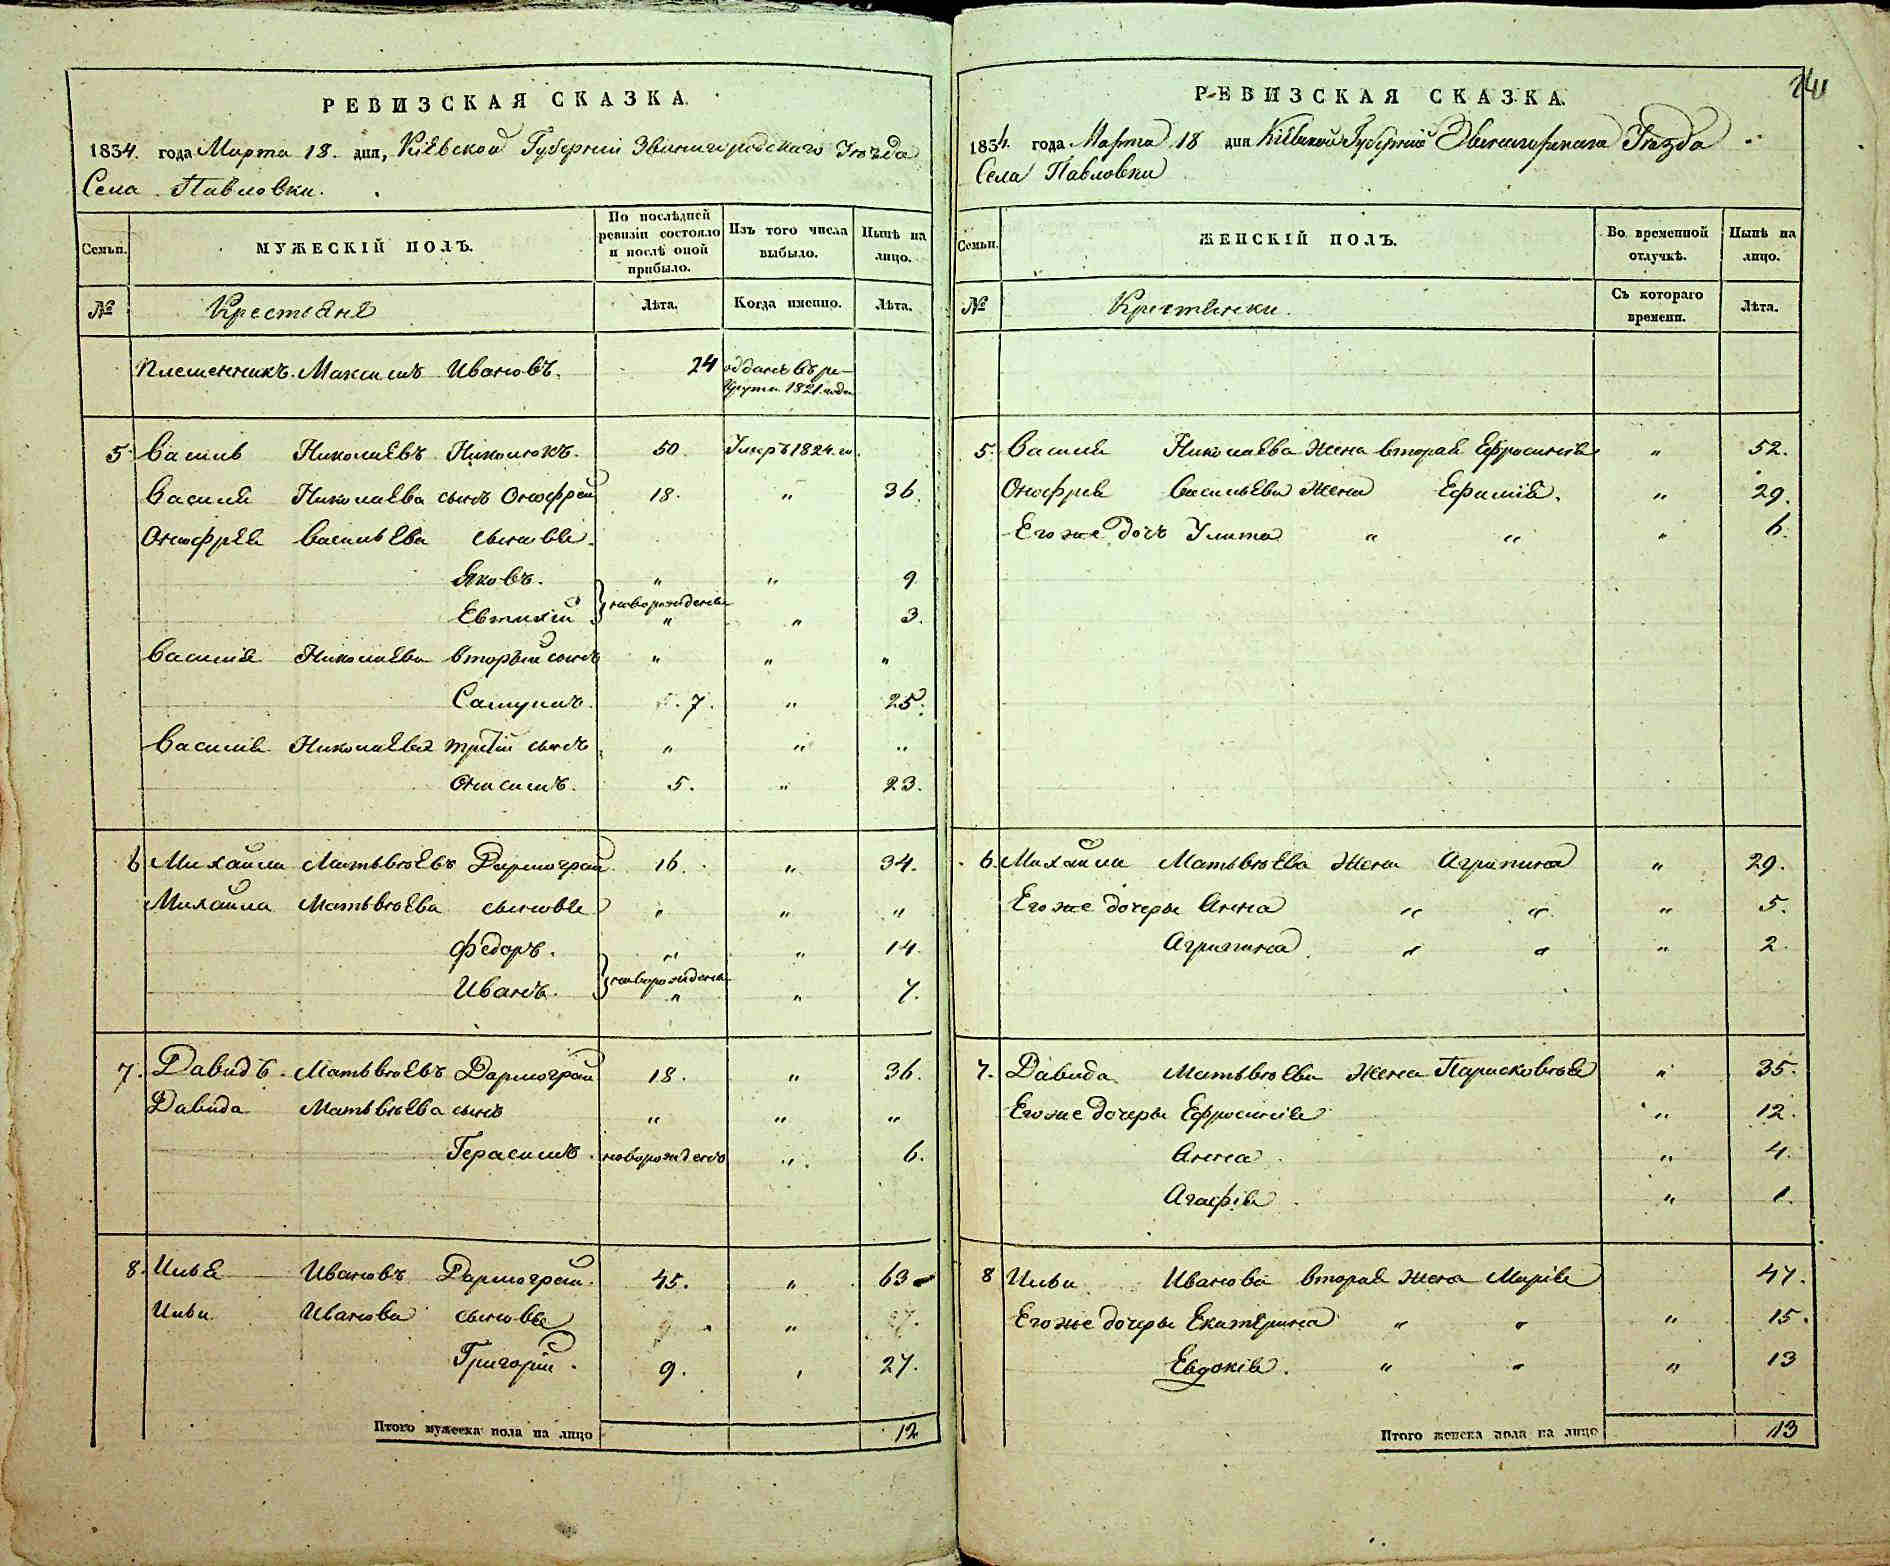 РЕВИЗСКАЯ СКАЗКА.
1834. года Марта 18. дня, Кіевской Губерніи Звенигородскаго Уезда
Села Павловки.
Семьи. МУЖЕСКІЙ ПОЛЪ. По послѣдней ревизіи состояло и послѣ оной прибыло. Изъ того числа выбыло. Нынѣ на лицо.
№ Крестьяне Лѣта. Когда именно. Лѣта.
Племенникъ Максимъ Ивановъ. 24 отданъ въ ре-
круты 1821 года
5. Василь Николаевъ Николюкъ. 50 Умръ 1824 го.
Василия Николаева сынъ Онофрей 18. " 36.
Онофрея Васильева сыновья.
Яковъ. " " 9
} новорожденны
Евтихій " " 3.
Василія Николаева вторый сынъ " " "
Самуилъ. 7. " 25.
Василія Николаева третій сынъ " " "
Онисимъ. 5. " 23.
6 Михайла Матьвѣевъ Дармограй 16. " 34.
Михайла Матьвѣева сыновья " " "
Федоръ. " " 14.
} новорождены
Иванъ. " " 7.
7. Давидъ Матьвѣевъ Дармограй 18. " 36.
Давида Матьвѣева сынъ " " "
Герасимъ. новорожденъ " 6.
8. Илья Ивановъ Дармограй. 45. " 63
Ильи Иванова сыновья "
Григорій. 9. " 27.
Итого мужеска пола на лицо 12
РЕВИЗСКАЯ СКАЗКА.
1834. года Марта 18 дня Кіевской Губерніи Звенигородскаго Уезда
Села Павловки
Семьи. ЖЕНСКІЙ ПОЛЪ. Во временной отлучкѣ. Нынѣ на лицо.
№ Крестьянки. Съ котораго времени. Лѣта.
5. Василия Николаева жена вторая Ефросинія " 52.
Онофрея Васильева жена Ефимія. " 29.
Его же дочь Улита " " " 6.
6. Михайла Матьвѣева жена Агрипина " 29.
Его же дочеры Анна " " " 5.
Агрипина " " " 2.
7. Давида Матьвѣева жена Парасковія " 35.
Его же дочеры Ефросинія " 12.
Анна " 4.
Агафія " 1.
8 Ильи Иванова вторая жена Марія 47.
Его же дочеры Екатерина " " " 15.
Евдокія. " " " 13
Итого женска пола на лицо 13